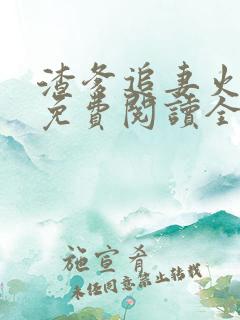 渣爹追妻火
免費閱讀全
施宣肴
未经同意禁止转载